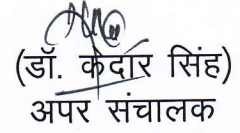 (डॉ. केदार सिंह)
अपर संचालक